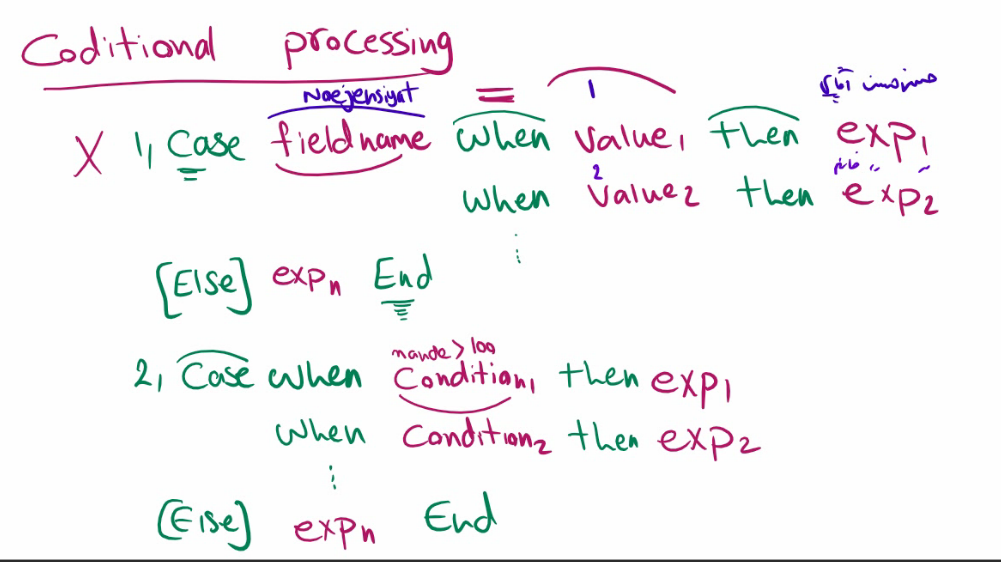 Coditional processing
Noejensiyat = 1 مشترک آقای
X 1, Case fieldname when value1 then exp1
2 خانم " ~
when value2 then exp2
[Else] expn End
mande > 100
2, Case when Condition1 then exp1
when Condition2 then exp2
[Else] expn End